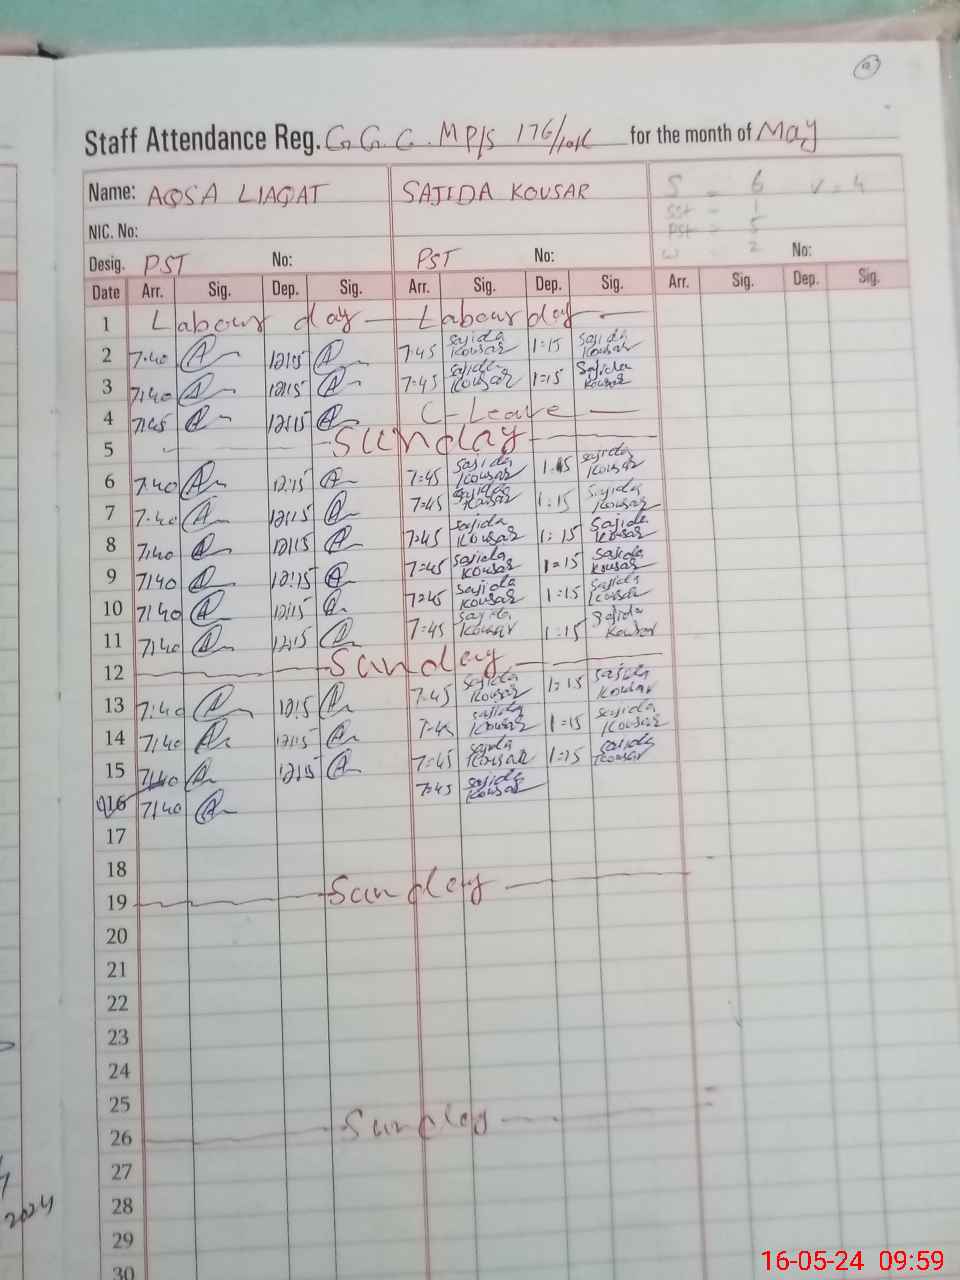 Staff Attendance Reg. G. G. C. MP/S 176/10R for the month of May
Name: AQSA LIAQAT SAJIDA KOUSAR S = 6 V = 4
NIC. No: SST - 1
PST - 5
Desig. PST No: PST No: W - 2 No:
Date Arr. Sig. Dep. Sig. Arr. Sig. Dep. Sig. Arr. Sig. Dep. Sig.
1 Labour day Labour day
2 7:40 12:15 7:45 Sajida Kousar 1:15 Sajida Kousar
3 7:40 12:15 7=45 Sajida Kousar 1=15 Sajida Kousar
4 7:45 12:15 C-Leave
5 Sunday
6 7:40 12:15 7=45 Sajida Kousar 1:15 Sajida Kousar
7 7:40 12:15 7=45 Sajida Kousar 1:15 Sajida Kousar
8 7:40 12:15 7=45 Sajida Kousar 1:15 Sajida Kousar
9 7:40 12:15 7=45 Sajida Kousar 1=15 Sajida Kousar
10 7:40 12:15 7=45 Sajida Kousar 1=15 Sajida Kousar
11 7:40 12:15 7=45 Sajida Kousar 1:15 Sajida Kousar
12 Sunday
13 7:40 12:15 7=45 Sajida Kousar 1=15 Sajida Kousar
14 7:40 12:15 7=45 Sajida Kousar 1=15 Sajida Kousar
15 7:40 12:15 7=45 Sajida Kousar 1=15 Sajida Kousar
16 7:40 7=45 Sajida Kousar
17
18
19 Sunday
20
21
22
23
24
25
26 Sunday
27
28
2024
29
30
16-05-24 09:59